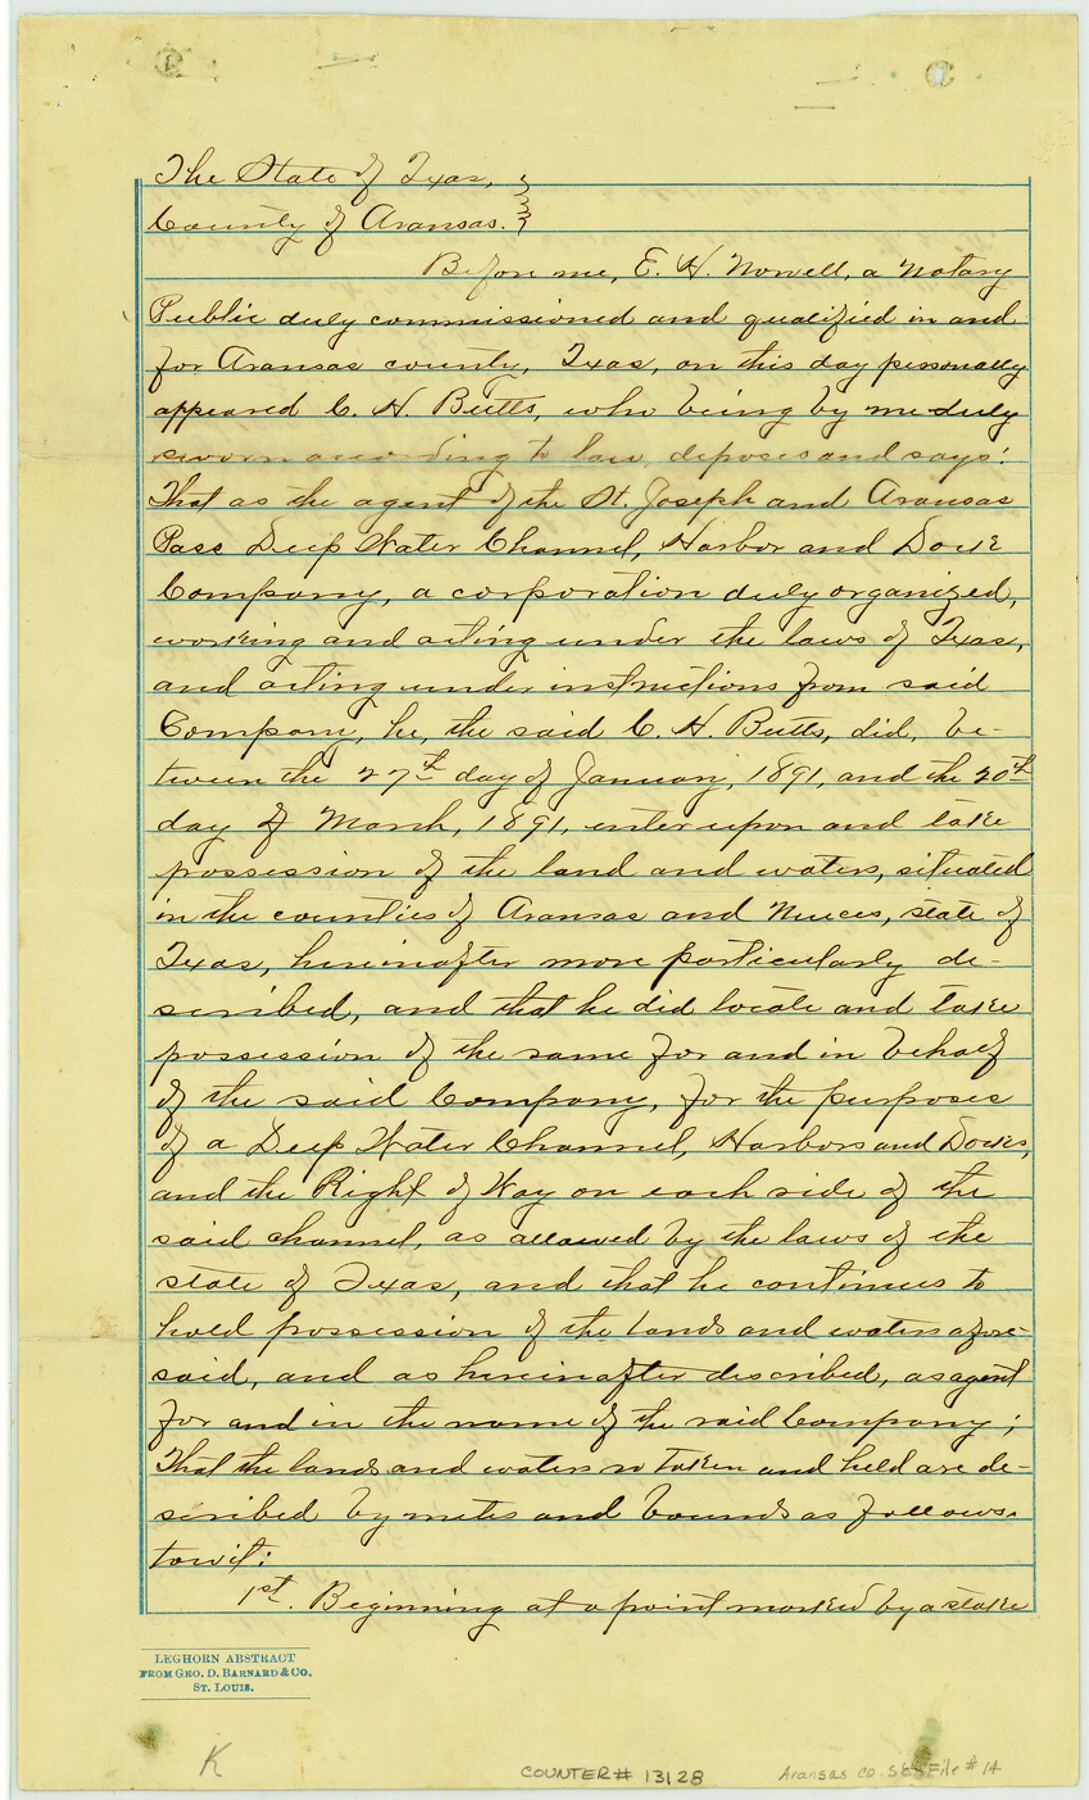 The State of Texas,
County of Aransas.
Before me, E. H. Norvell, a Notary
Public duly commissioned and qualified in and
for Aransas county, Texas, on this day personally
appeared C. H. Butts, who being by me duly
sworn according to law, deposes and says:
That as the agent of the St. Joseph and Aransas
Pass Deep Water Channel, Harbor and Dock
Company, a corporation duly organized,
working and acting under the laws of Texas,
and acting under instructions from said
Company, he, the said C. H. Butts, did, be-
tween the 27th day of January, 1891, and the 20th
day of March, 1891, enter upon and take
possession of the land and waters, situated
in the counties of Aransas and Nueces, state of
Texas, hereinafter more particularly de-
scribed, and that he did locate and take
possession of the same for and in behalf
of the said Company, for the purposes
of a Deep Water Channel, Harbors and Docks,
and the Right of Way on each side of the
said channel, as allowed by the laws of the
state of Texas, and that he continues to
hold possession of the lands and waters afore-
said, and as hereinafter described, as agent
for and in the name of the said Company;
That the lands and waters so taken and held are de-
scribed by metes and bounds as follows.
towit:
1st. Beginning at a point marked by a stake
LEGHORN ABSTRACT
FROM GEO. D. BARNARD & CO.
ST. LOUIS.
K
COUNTER# 13128
Aransas Co. Sk File # 14